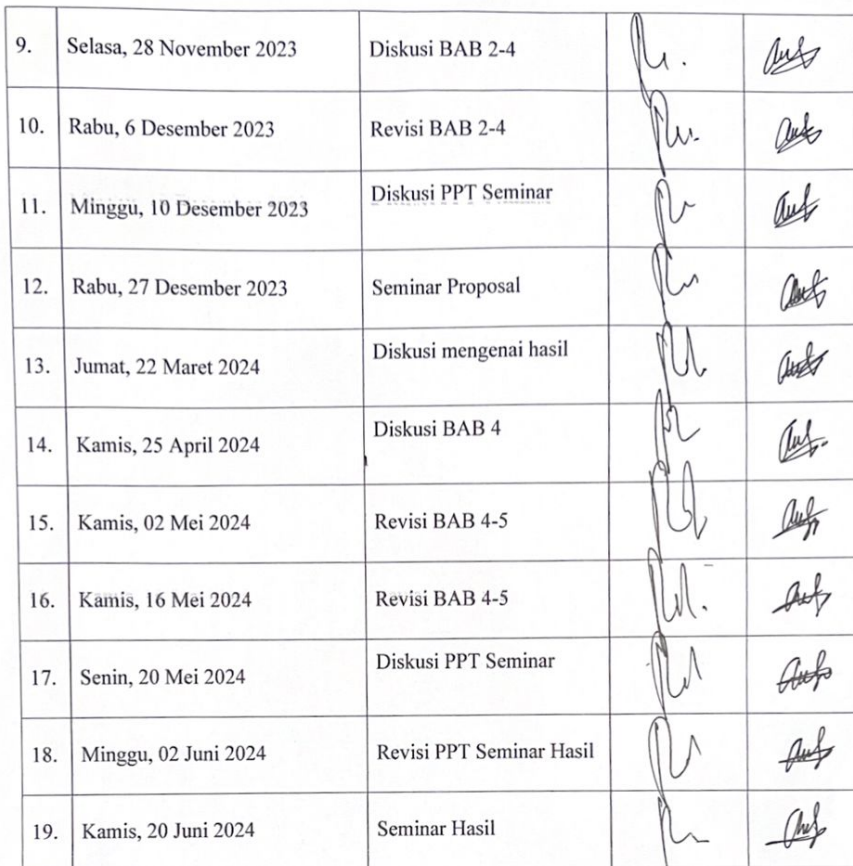 9. Selasa, 28 November 2023 Diskusi BAB 2-4
10. Rabu, 6 Desember 2023 Revisi BAB 2-4
11. Minggu, 10 Desember 2023 Diskusi PPT Seminar
12. Rabu, 27 Desember 2023 Seminar Proposal
13. Jumat, 22 Maret 2024 Diskusi mengenai hasil
14. Kamis, 25 April 2024 Diskusi BAB 4
15. Kamis, 02 Mei 2024 Revisi BAB 4-5
16. Kamis, 16 Mei 2024 Revisi BAB 4-5
17. Senin, 20 Mei 2024 Diskusi PPT Seminar
18. Minggu, 02 Juni 2024 Revisi PPT Seminar Hasil
19. Kamis, 20 Juni 2024 Seminar Hasil